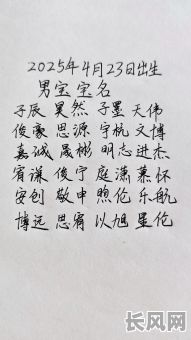 2025年4月23日出生
男宝宝名
子辰 昊然 子墨 天伟
俊豪 思源 宇杭 文博
嘉诚 晟彬 明志 进杰
宥谦 俊宁 庭潇 慕怀
安创 敬申 煦伦 乐航
博远 思宥 以旭 星伦
长风网